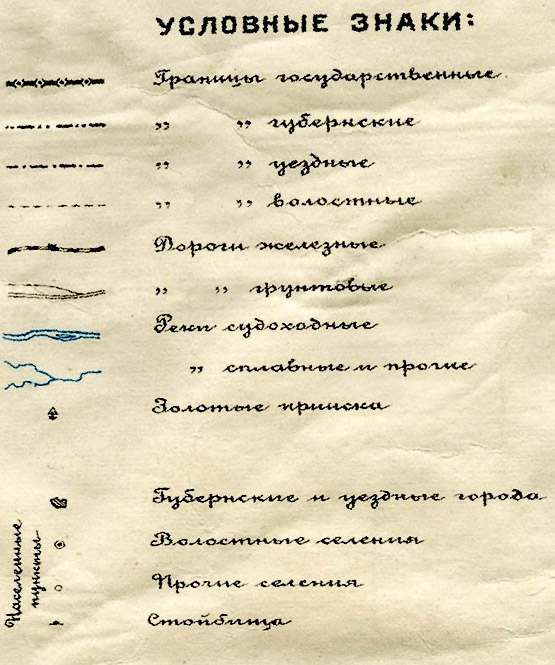 УСЛОВНЫЕ ЗНАКИ:
Границы государственные
„ „ губернские
„ „ уездные
„ „ волостные
Дороги железные
„ „ грунтовые
Реки судоходные
„ сплавные и прочие
Золотые прииска
Населенные пункты
Губернские и уездные города
Волостные селения
Прочие селения
Стойбища